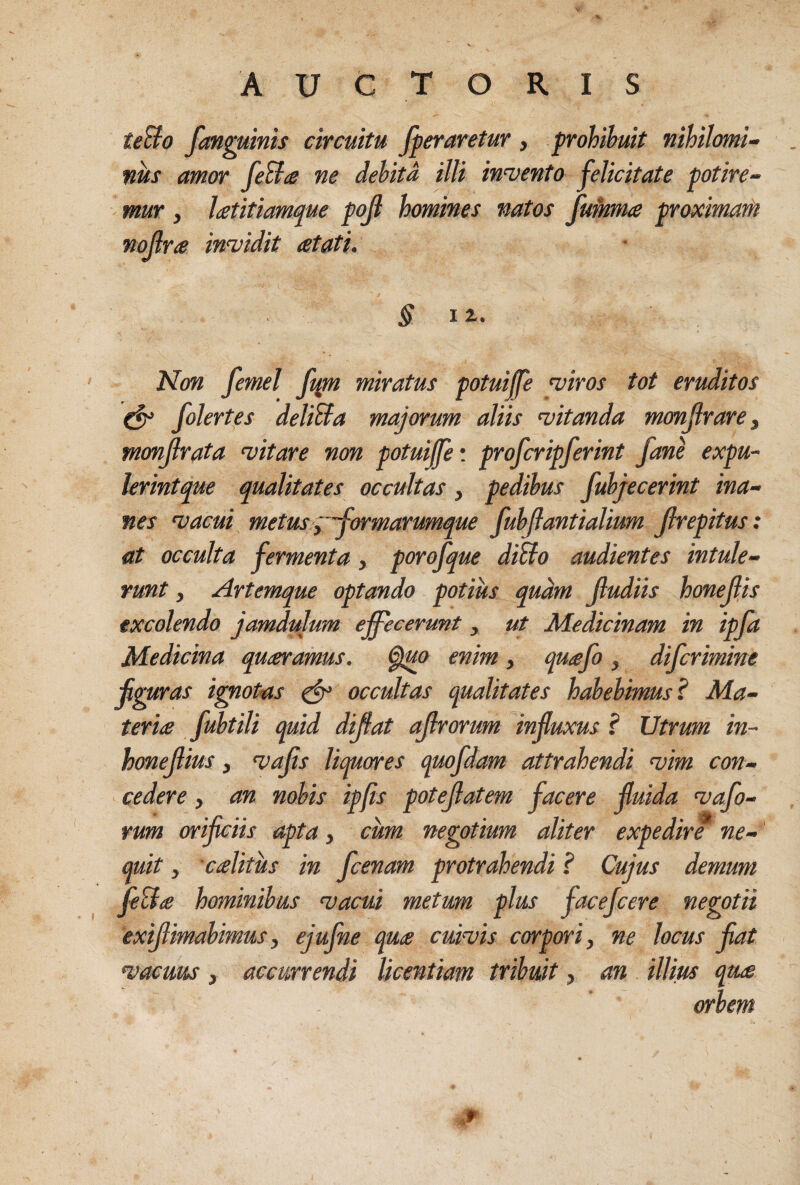 AUCTORIS
tecto ſanguinis circuitu ſperaretur, prohibuit nihilomi-
nùs amor ſectæ ne debitâ illi invento felicitate potire-
mur, lætitiamque poſt homines natos ſummæ proximam
noſtræ invidit ætati.
§ 12.
Non ſemel ſum miratus potuiſſe viros tot eruditos
& ſolertes delicta majorum aliis vitanda monſtrare,
monſtrata vitare non potuiſſe: proſcripſerint ſanè expu-
lerintque qualitates occultas, pedibus ſubjecerint ina-
nes vacui metus, formarumque ſubſtantialium ſtrepitus:
at occulta fermenta, poroſque dicto audientes intule-
runt, Artemque optando potiùs quàm ſtudiis honeſtis
excolendo jamdulum effecerunt, ut Medicinam in ipſa
Medicina quæramus. Quo enim, quæſo, diſcrimine
figuras ignotas & occultas qualitates habebimus? Ma-
teriæ ſubtili quid diſtat aſtrorum influxus? Utrum in-
honeſtius, vaſis liquores quoſdam attrahendi vim con-
cedere, an nobis ipſis poteſtatem facere fluida vaſo-
rum orificiis apta, cùm negotium aliter expedire ne-
quit, cælitùs in ſcenam protrahendi? Cujus demum
ſectæ hominibus vacui metum plus faceſcere negotii
exiſtimabimus, ejuſne quæ cuivis corpori, ne locus fiat
vacuus, accurrendi licentiam tribuit, an illius quæ
orbem